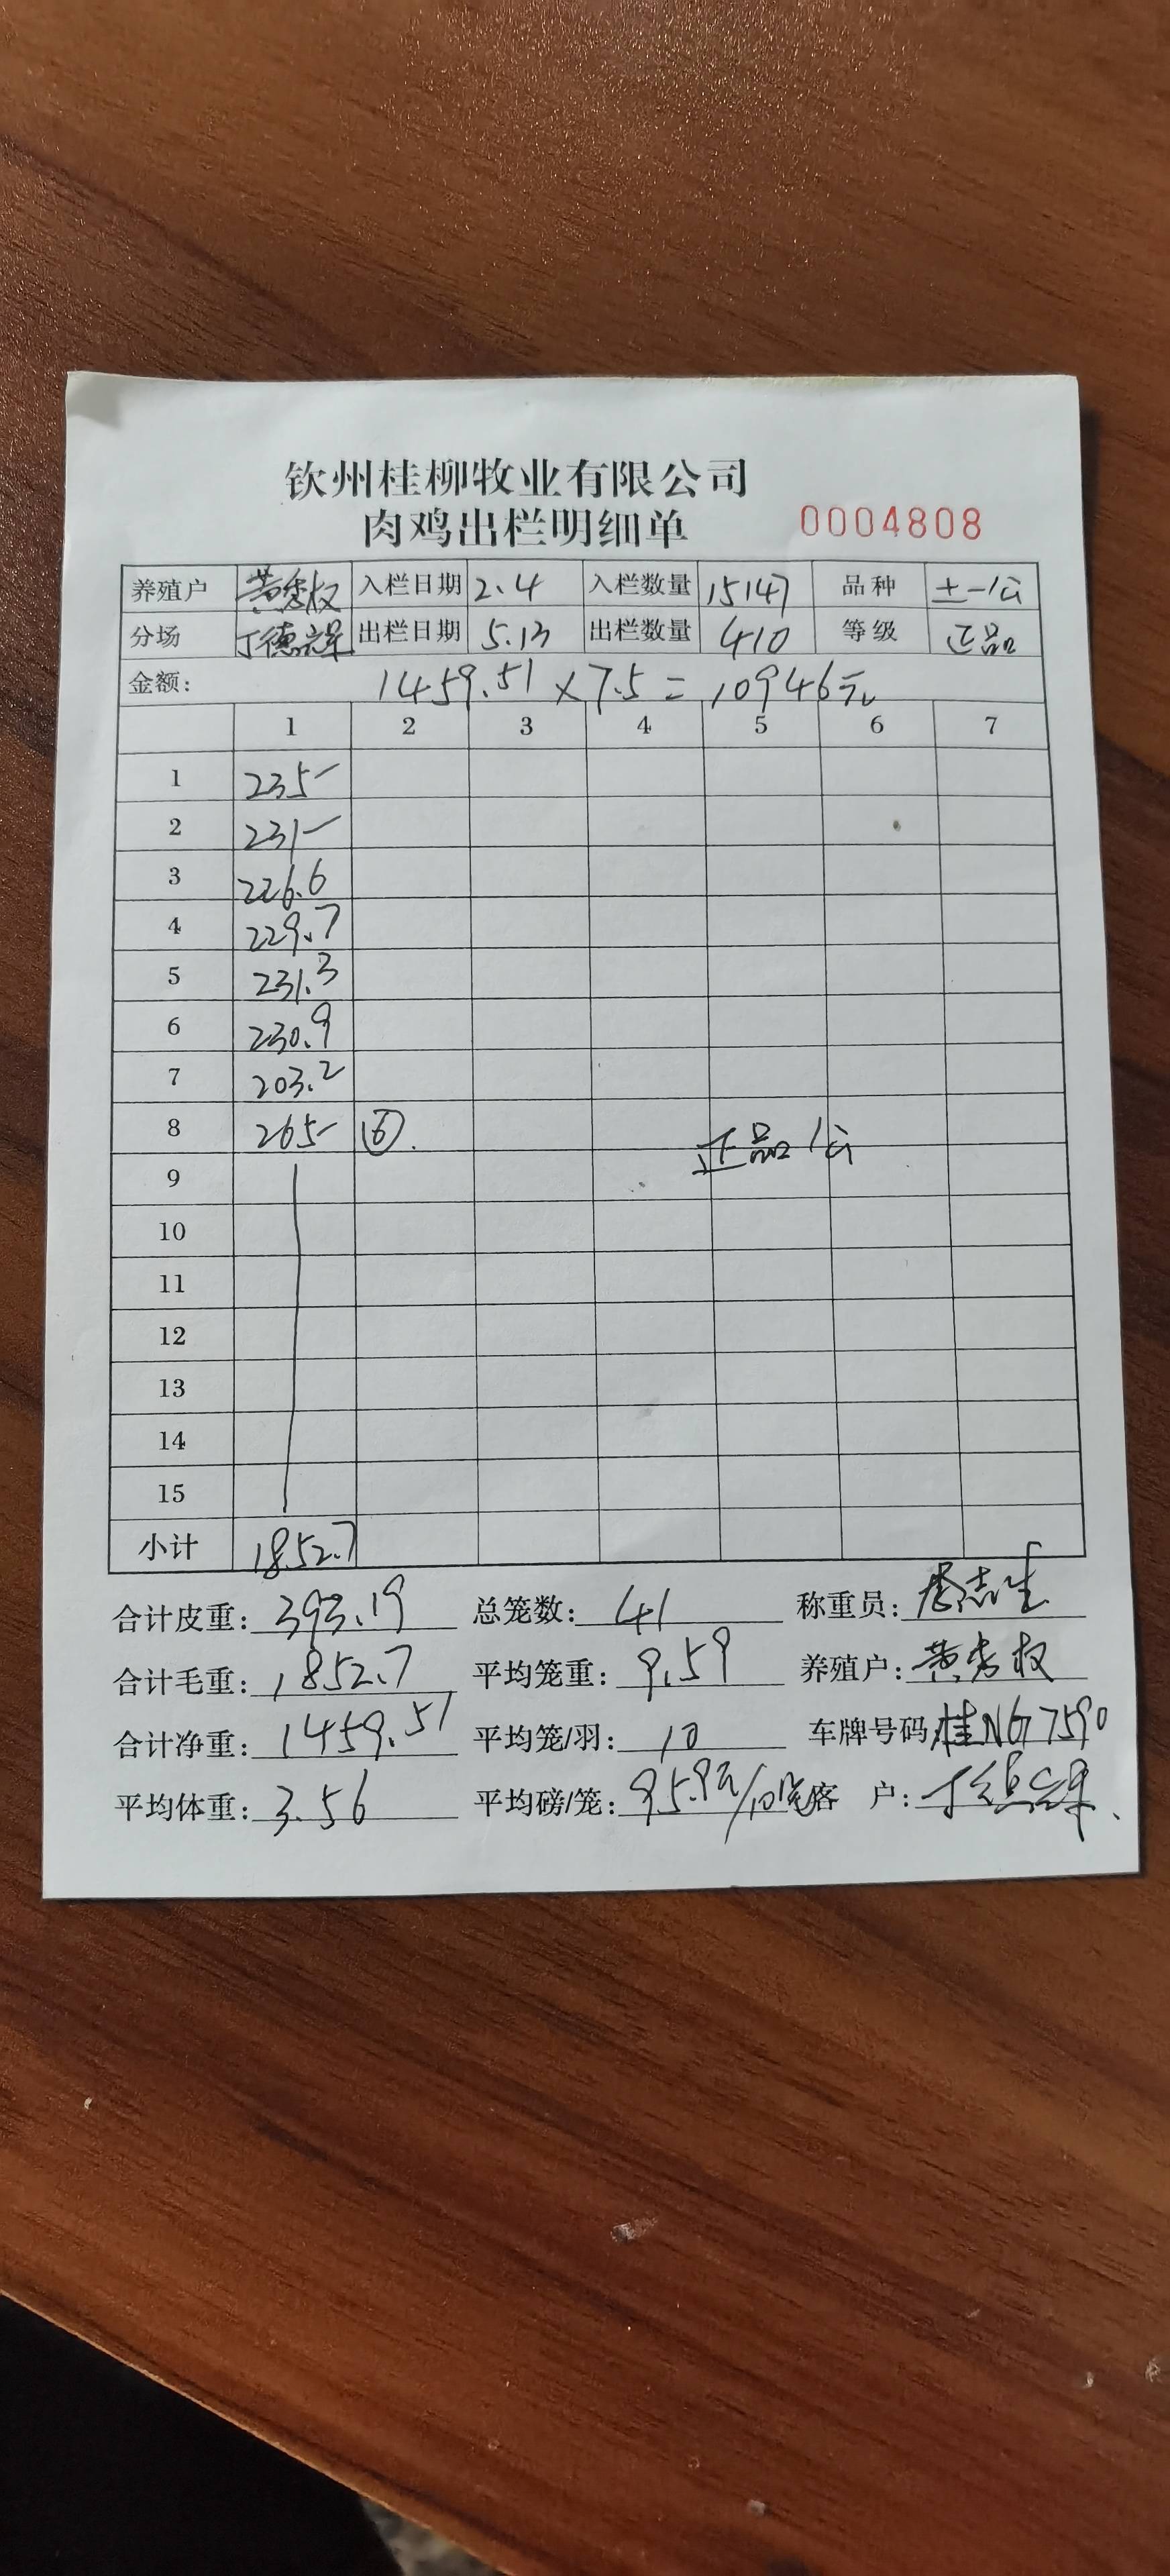 钦州桂柳牧业有限公司
肉鸡出栏明细单 0004808
养殖户 黄秀权 入栏日期 2.4 入栏数量 15147 品种 土一公
分场 丁德 出栏日期 5.13 出栏数量 410 等级 正品
金额: 1459.51×7.5=10946元
1 2 3 4 5 6 7
1 235-
2 231-
3 226.6
4 229.7
5 231.3
6 230.9
7 203.2
8 265- ⑥. 正品公
9
10
11
12
13
14
15
小计 1852.7
合计皮重: 393.19 总笼数: 41 称重员: 志生
合计毛重: 1852.7 平均笼重: 9.59 养殖户: 黄秀权
合计净重: 1459.51 平均笼/羽: 10 车牌号码 桂NG7590
平均体重: 3.56 平均磅/笼: 95.9元/10笼 客 户: 丁